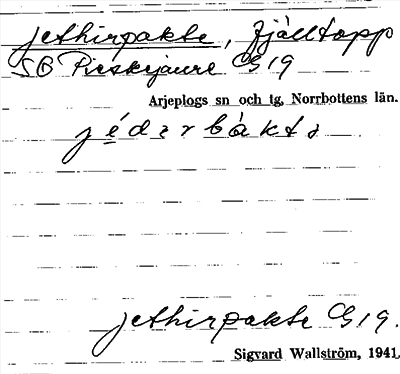 jethirpakte, fjälltopp
SO Pieskejaure CG 19
Arjeplogs sn och tg, Norrbottens län.
jédərbàktə
jethirpakte CG 19.
Sigvard Wallström, 1941.